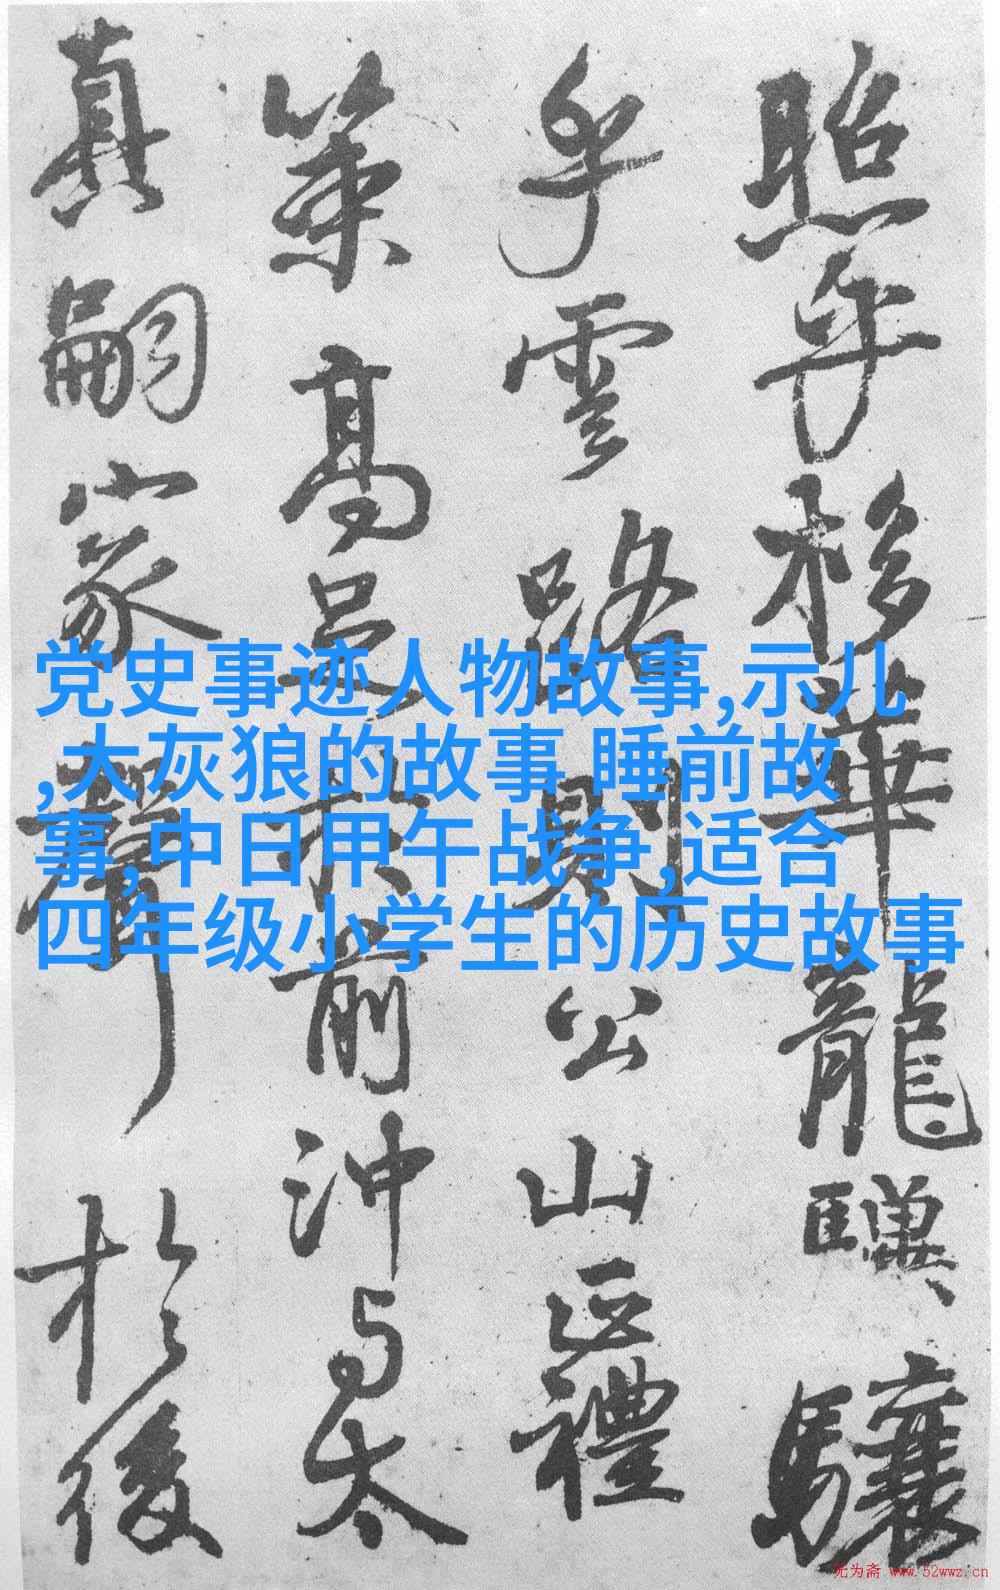 照乎栘華龍驥驤
乎雲路則公山正禮
策高足於前沖与太
真嗣家聲於後
党史事迹人物故事,示儿
,大灰狼的故事 睡前故
事,中日甲午战争,适合
四年级小学生的历史故事
无为斋 www.52wwz.cn